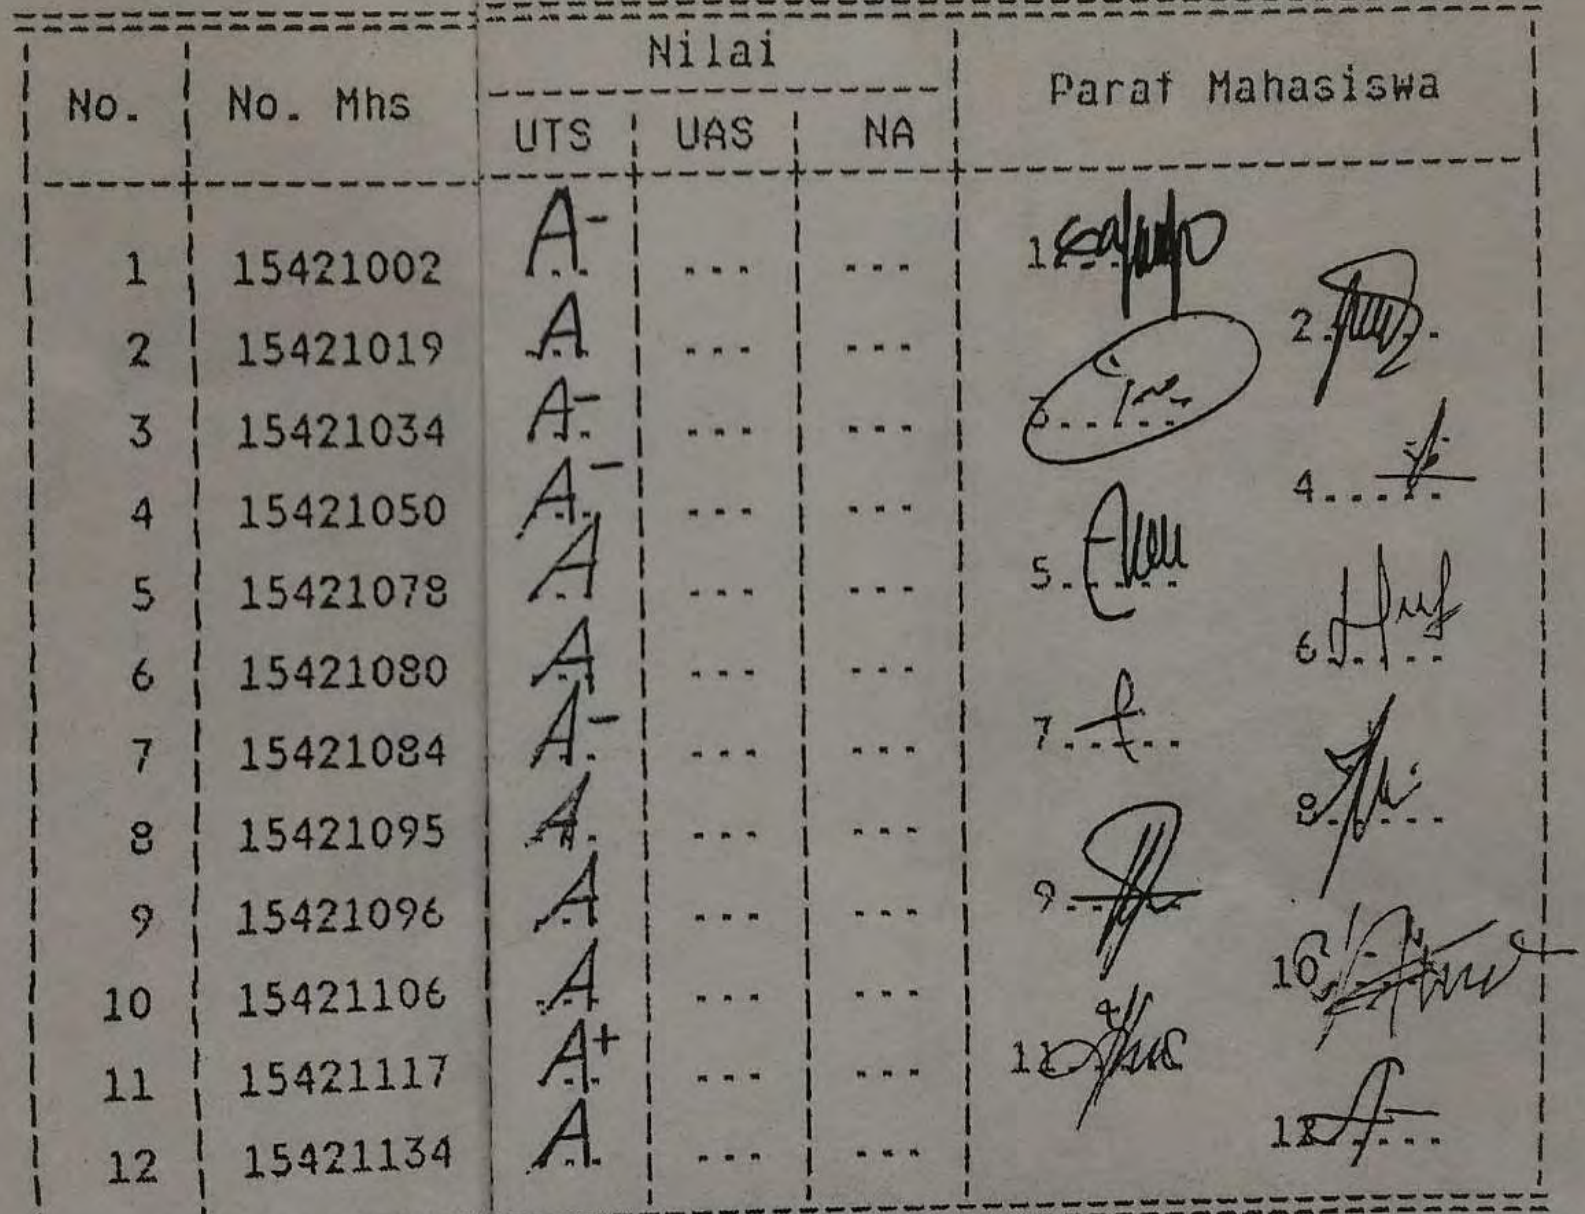 Nilai
No. No. Mhs Paraf Mahasiswa
UTS UAS NA
1 15421002 A- ... ... 1
2 15421019 A ... ... 2
3 15421034 A- ... ... 3
4 15421050 A- ... ... 4
5 15421078 A ... ... 5
6 15421080 A ... ... 6
7 15421084 A- ... ... 7
8 15421095 A ... ... 8
9 15421096 A ... ... 9
10 15421106 A ... ... 10
11 15421117 A+ ... ... 11
12 15421134 A ... ... 12